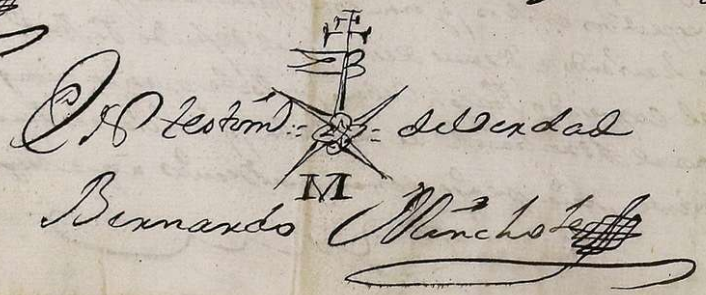 En testim.o de Verdad
M
Bernardo Minchote